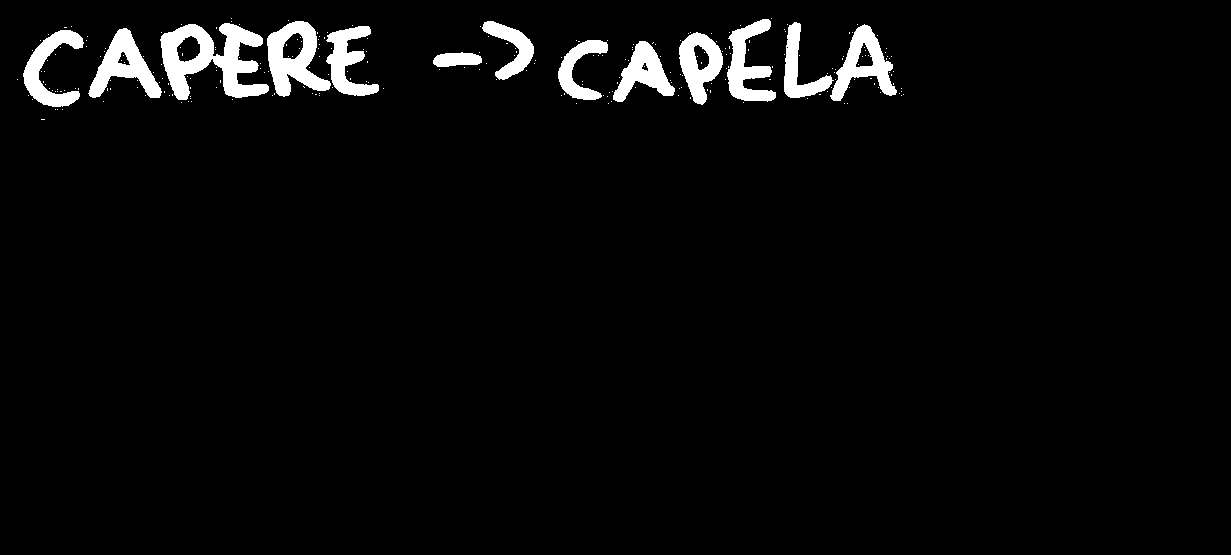 CAPERE -> CAPELA